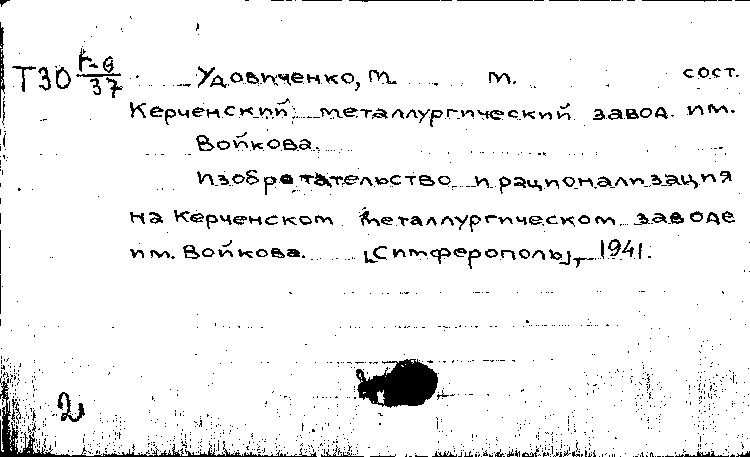 Т30 г-6/37 Удовиченко, М. М. сост.
Керченский металлургический завод им.
Войкова.
Изобретательство и рационализация
на Керченском металлургическом заводе
им. Войкова. [Симферополь], 1941.
2